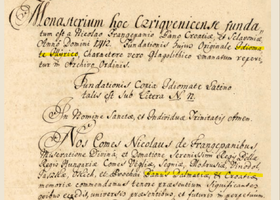 Monasterium hoc Czriquenicense funda-
tum est a Nicolao Frangepanio Bano Croatiæ, et
Anno Domini 1412. Fundationis hujus Originale Idioma-
te Illyrico, Charactere vero Glagolithico emanatum reperi-
tur in Archivo Ordinis.
Fundationis Copia Idiomate Latino
talis est Sub Litera N. n.
In Nomine Sanctæ, et Individuæ Trinitatis Amen
Nos Comes Nicolaus de Frangepanibus,
Miseratione Divina, et Donatione Serenissimi
Regis Hungariæ Comes Vegliæ, Segniæ, Modrussiæ,
Banus Dalmatiæ, et Croatiæ
memoriæ commendamus tenore præsentium Significantes
quibus expedit, universis præsentibus, et futuris